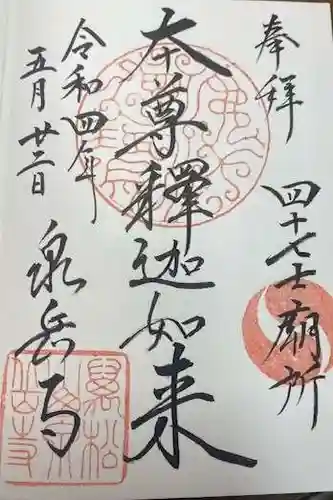 奉拝
四十七士廟所
本尊釋迦如来
令和四年
五月廿二日
泉岳寺